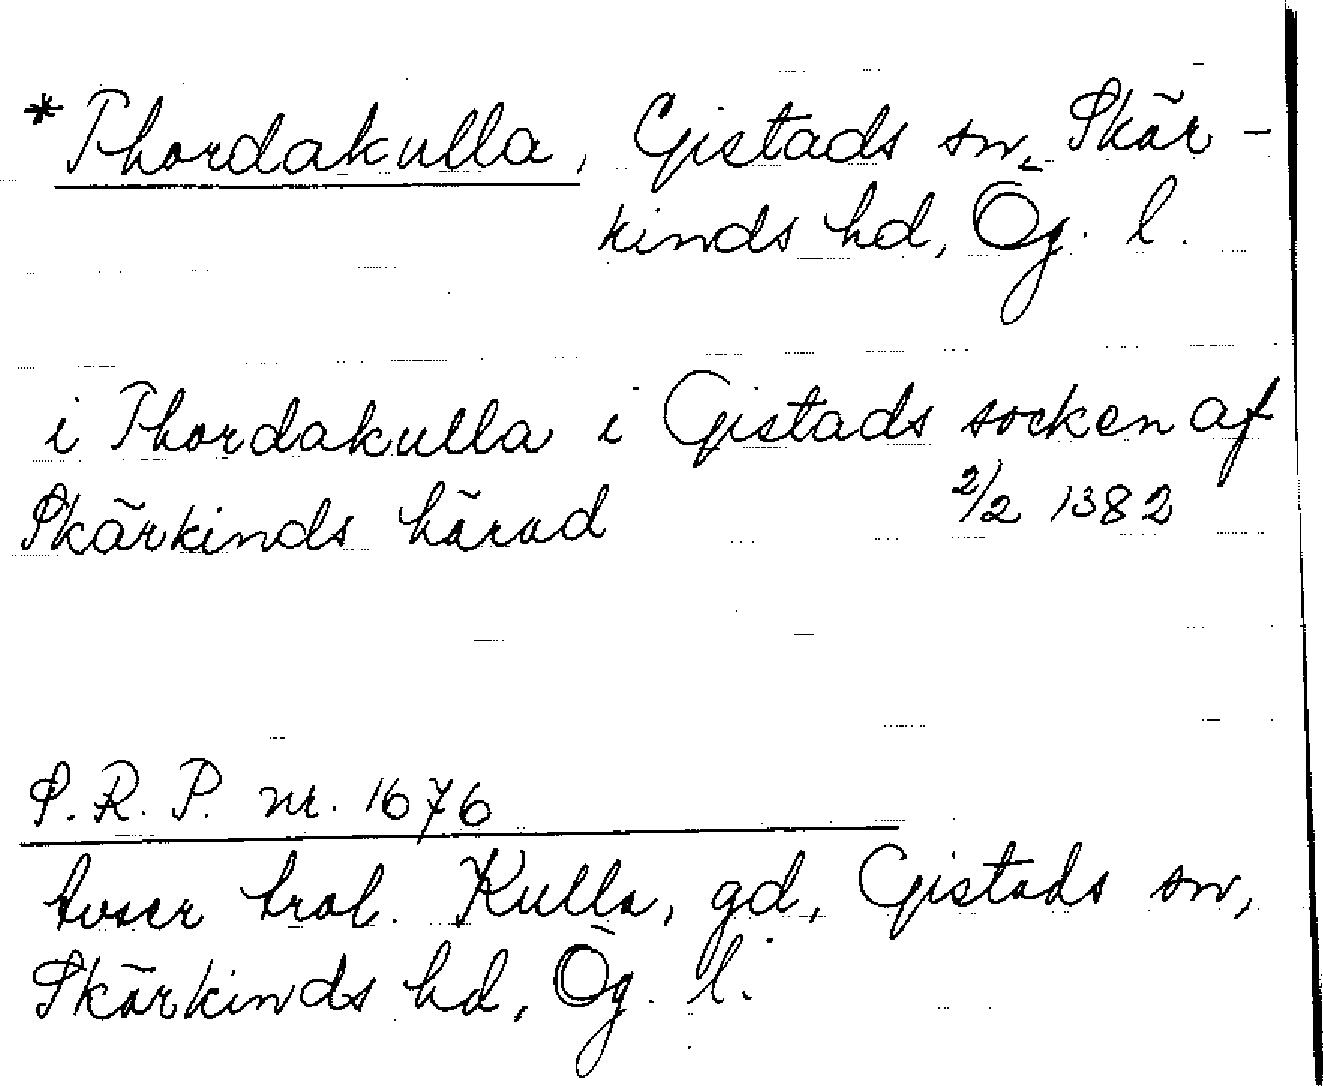 *Thordakulla, Gistads sn, Skär-
kinds hd, Ög. l.
i Thordakulla i Gistads socken af
Skärkinds härad 2/2 1382
S.R.P. nr. 1676
Avser trol. Kulla, gd, Gistads sn,
Skärkinds hd, Ög. l.